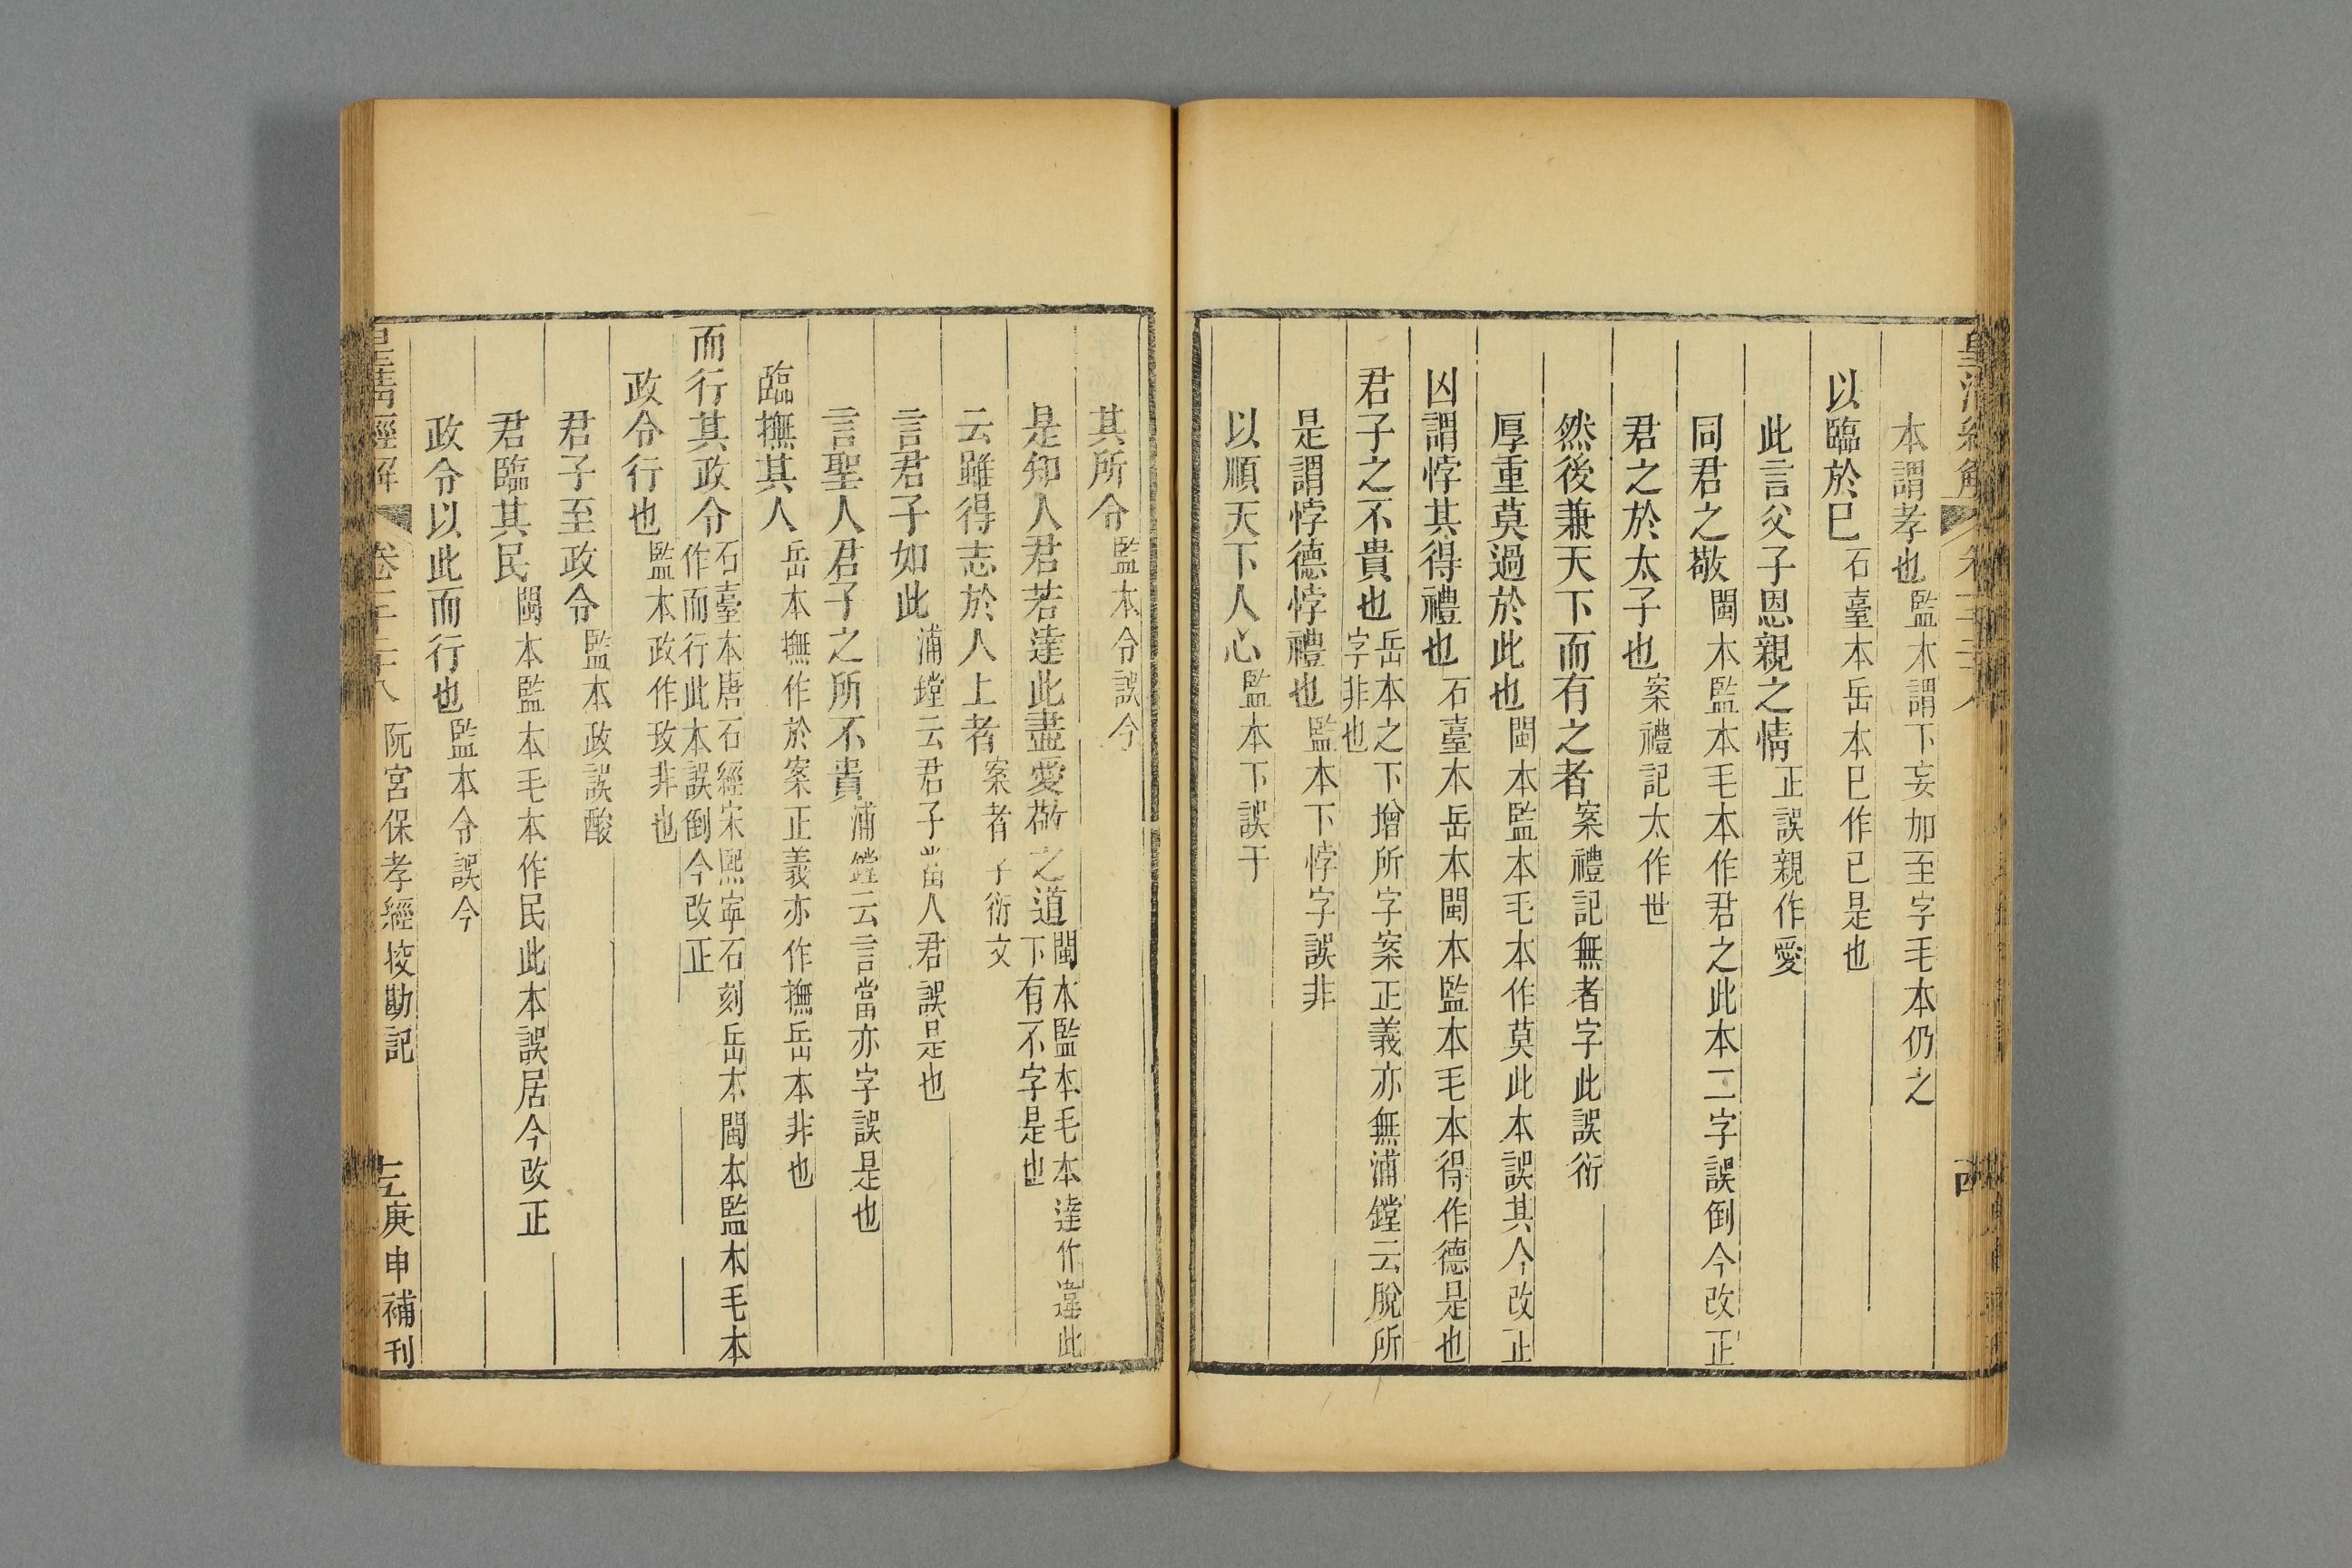 本謂孝也監本謂下妄加至字毛本仍之
以臨於巳石臺本岳本巳作已是也
此言父子恩親之情正誤親作愛
同君之敬閩本監本毛本作君之此本二字誤倒今改正
君之於太子也案禮記太作世
然後兼天下而有之者案禮記無者字此誤衍
厚重莫過於此也閩本監本毛本作莫此本誤其今改正
凶謂悖其得禮也石臺本岳本閩本監本毛本得作德是也
君子之不貴也岳本之下增所字案正義亦無浦鏜云脫所
字非也
是謂悖德悖禮也監本下悖字誤非
以順天下人心監本下誤干
其所令監本令誤今
是知人君若達此盡愛敬之道閩本監本毛本達作違此
下有不字是也
云雖得志於人上者案者子衍文
言君子如此浦鏜云君子當人君誤是也
言聖人君子之所不貴浦鏜云言當亦字誤是也
臨撫其人岳本撫作於案正義亦作撫岳本非也
而行其政令石臺本唐石經宋熙寧石刻岳本閩本監本毛本
作而行此本誤倒今改正
政令行也監本政作攻非也
君子至政令監本政誤酸
君臨其民閩本監本毛本作民此本誤居今改正
政令以此而行也監本令誤今
皇清經解 卷 阮宮保孝經挍勘記 庚申補刊